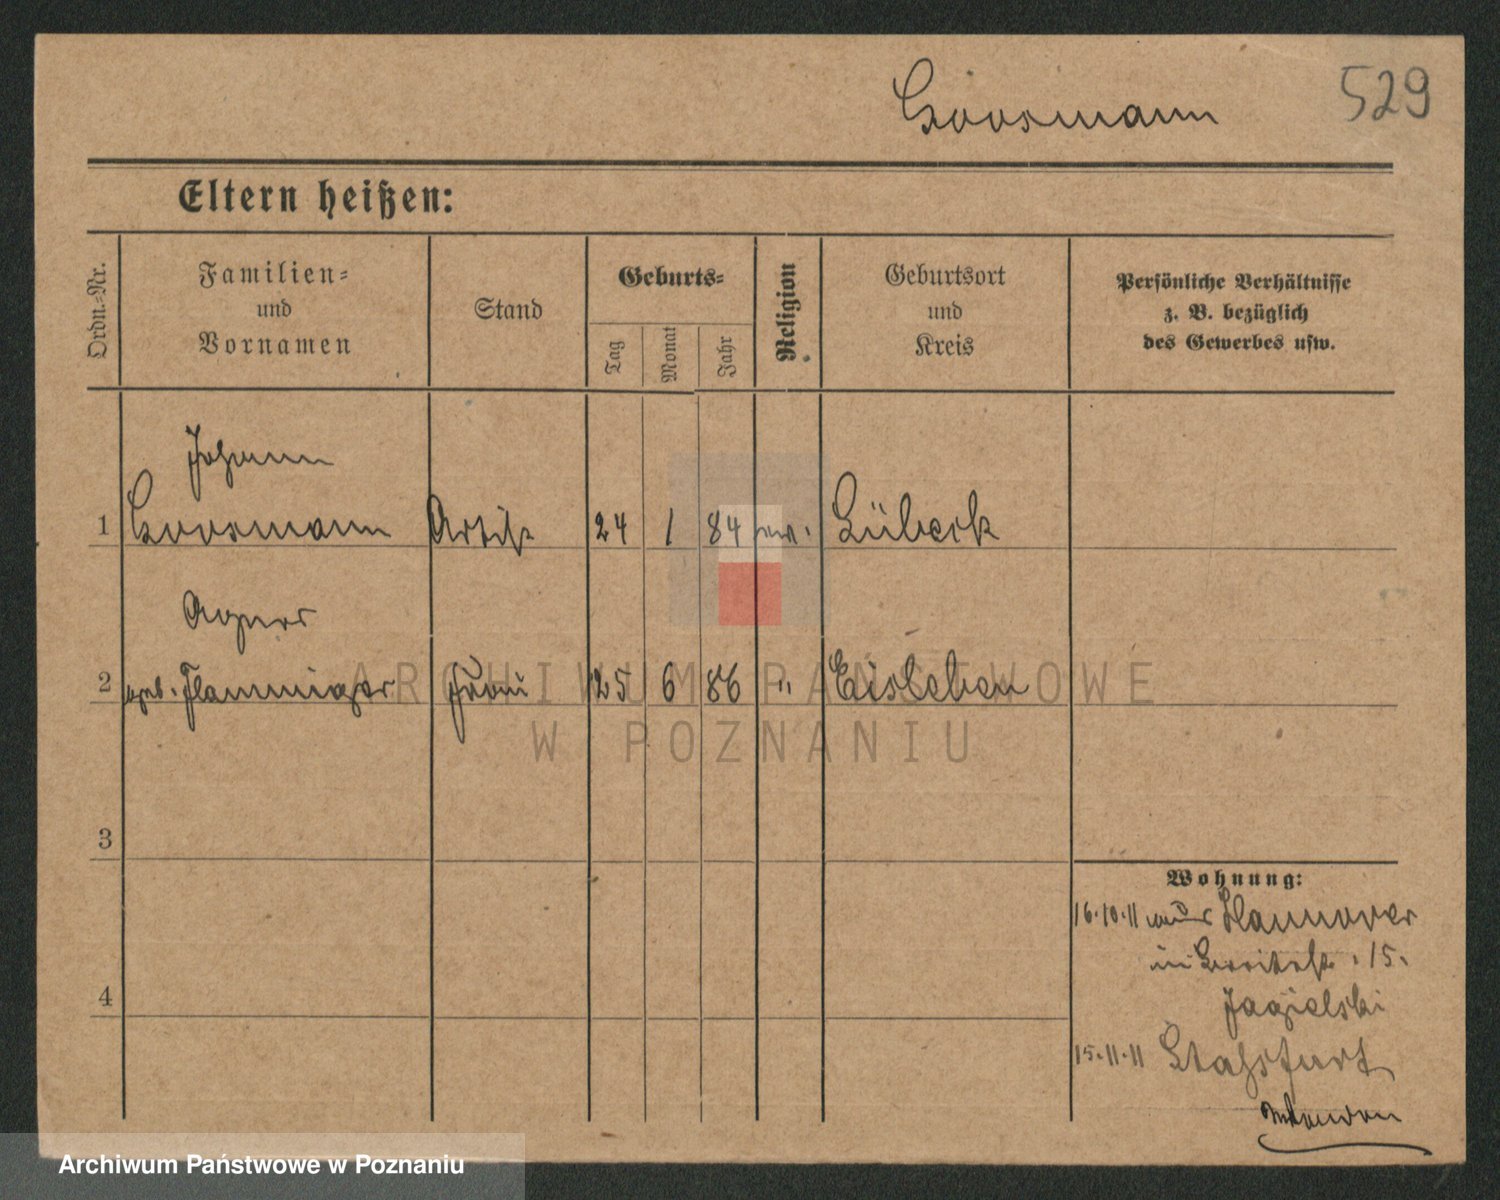 529
Eltern heißen:
Ordn.-Nr.
Familien-
und
Vornamen
Stand
Geburts-
Tag
Monat
Jahr
Religion
Geburtsort
und
Kreis
Persönliche Verhältnisse
z. B. bezüglich
des Gewerbes usw.
Johann
1 Artist 24 1 84 Lübeck
Agnes
2 geb. Flamminger Frau 25 6 86 " Eisleben
3
4
Wohnung:
16.10.11 aus Hannover
in Breitestr. 15.
Jagielski
15.11.11 Stassfurt
ARCHIWUM PAŃSTWOWE
W POZNANIU
Archiwum Państwowe w Poznaniu